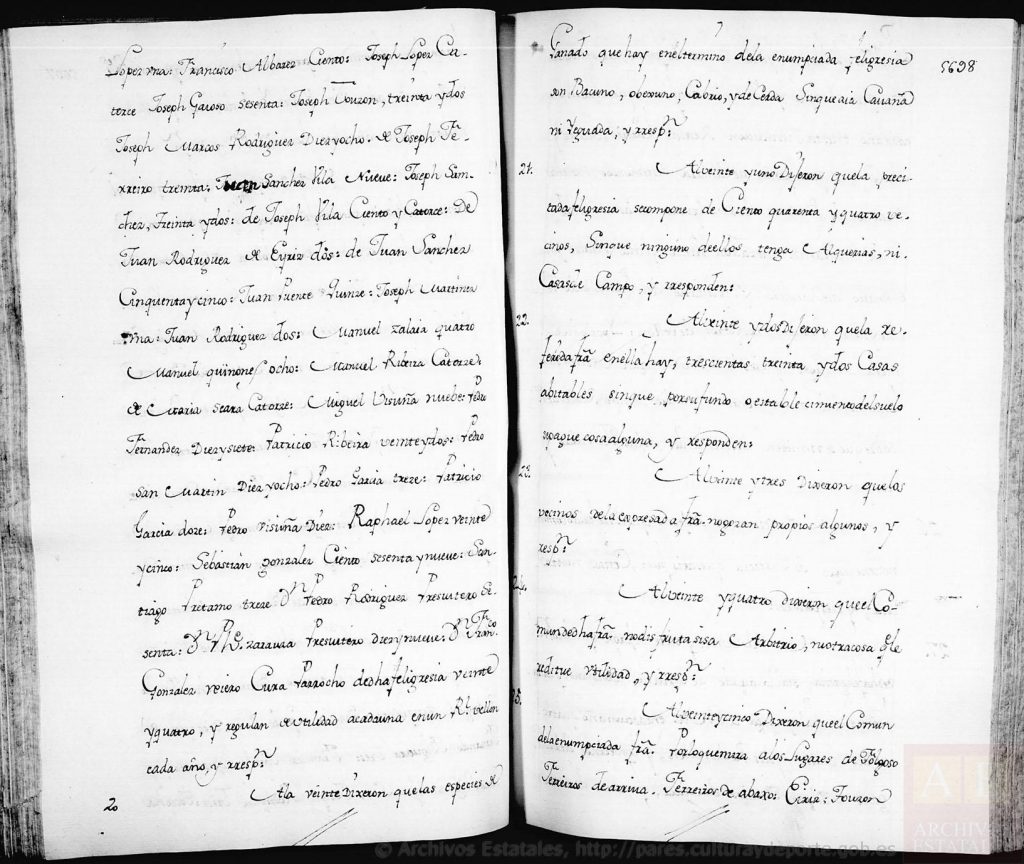 Lopez vna: Francisco Albarez Ciento: Joseph Lopez Ca-
torce Joseph Garoso sesenta: Joseph Touzon, treinta ydos
Joseph Marcos Rodriguez Diezyocho: de Joseph Fe-
rreiro treinta: Juan Sanchez Vila Nueve: Joseph San-
chez, treinta ydos: de Joseph Vila Ciento y Catorce: De
Juan Rodriguez de Eyriz dos: de Juan Sanchez
Cinquentaycinco: Juan Puente quinze: Joseph Martinez
vna: Juan Rodriguez dos: Manuel zalaia quatro
Manuel quiñones ocho: Manuel Ribeira Catorze:
de Maria Catorze: Miguel Visuña nuebe: Pedro
Fernandez Diezysiete: Patricio Ribeira veinteydos: Pedro
san Martin Diezyocho: Pedro Garcia treze: Patricio
Garcia doze: Pedro Visuña Diez: Raphael Lopez veinte
ycinco: Sebastian gonzalez Ciento sesenta ynueve: San-
tiago Pretamo treze Dn Pedro Rodriguez Presvitero se-
senta: Dn Presvitero diezynueve: Dn Franco
Gonzalez Cura Parrocho dedhafeligresia veinte
yquatro, y regulan de vtilidad acadauna enun Rl vellon
cada año, y rrespn
20 Ala veinte Dixeron quelas especies de
Ganado que hay eneltermino dela enunciada feligresia
5698
son Bacuno, obexuno, Cabrio, yde Cerda Sinqueaia Cavaña
ni Yeguada; y rrespn
21. Alveinte yuno Dixeron quela preci-
tadafeligresia secompone de Ciento quarenta yquatro ve-
cinos, Sinque ninguno deellos tenga Alquerias, ni
Casasde Campo, y rresponden:
22. Alveinte ydos Dixeron quela re-
feridafra enella hay, trescientas treinta ydos Casas
abitables sinque porsufundo oestablecimientodelsuelo
sepague cosa alguna, y responden:
23. Alveinte ytres Dixeron quelos
vecinos dela expresada fra nogozan propios algunos, y
respn
24. Alveinte yquatro dixeron queel Co-
mundedhafra nodisfrutasisa Arbitrio, niotracosa qle
reditue vtilidad, y rrespn
25. Alveinteycinco Dixeron queel Comun
delaenunciada fra Porloquemira alos Lugares de Folgoso
Ferreiros de arriva. Ferreiros de abaxo: Eiriz: Touzon
A
ARCHIVOS
ESTATALES
© Archivos Estatales, http://pares.culturaydeporte.gob.es